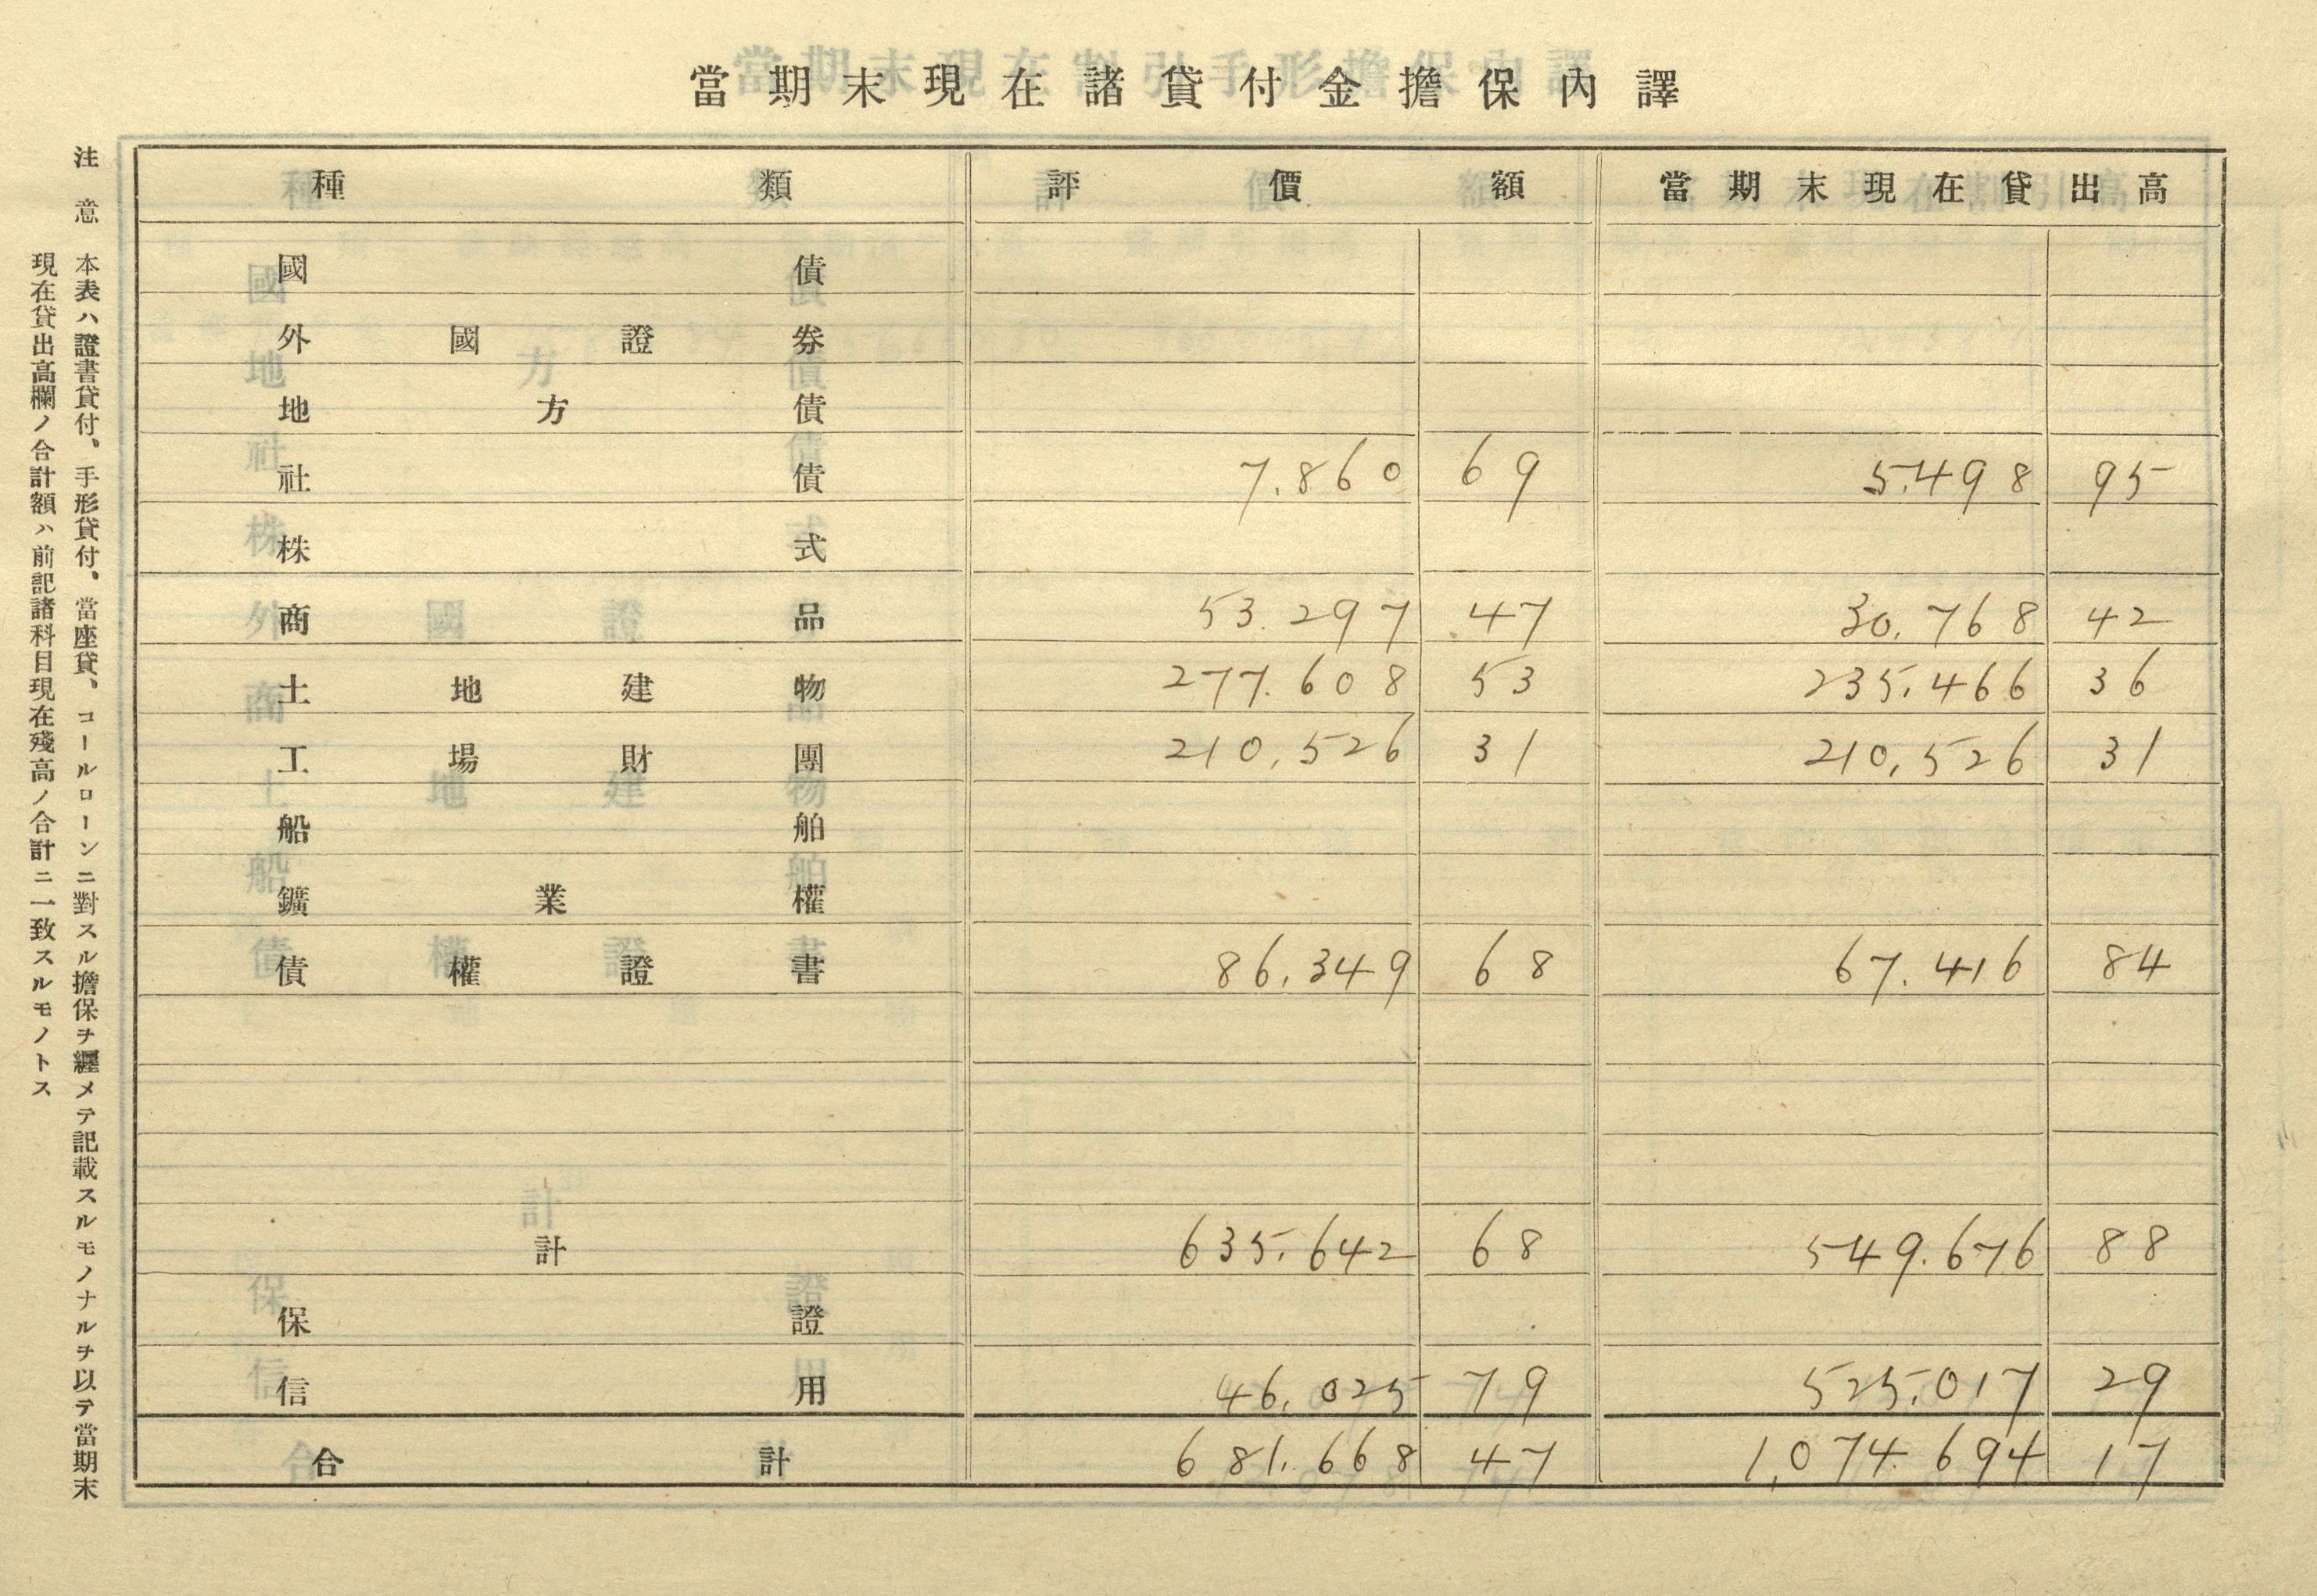 當期末現在諸貸付金擔保內譯
種類 評價額 當期末現在貸出高
國債
外國證券
地方債
社債 7.860 69 5.498 95
株式
商品 53.297 47 30.768 42
土地建物 277.608 53 235.466 36
工場財團 210,526 31 210,526 31
船舶
鑛業權
債權證書 86.349 68 67.416 84
計 635.642 68 549.676 88
保證
信用 46.025 79 525.017 29
合計 681.668 47 1,074.694 17
注意 本表ハ證書貸付、手形貸付、當座貸、コールローンニ對スル擔保ヲ纒メテ記載スルモノナルヲ以テ當期末
現在貸出高欄ノ合計額ハ前記諸科目現在殘高ノ合計ニ一致スルモノトス